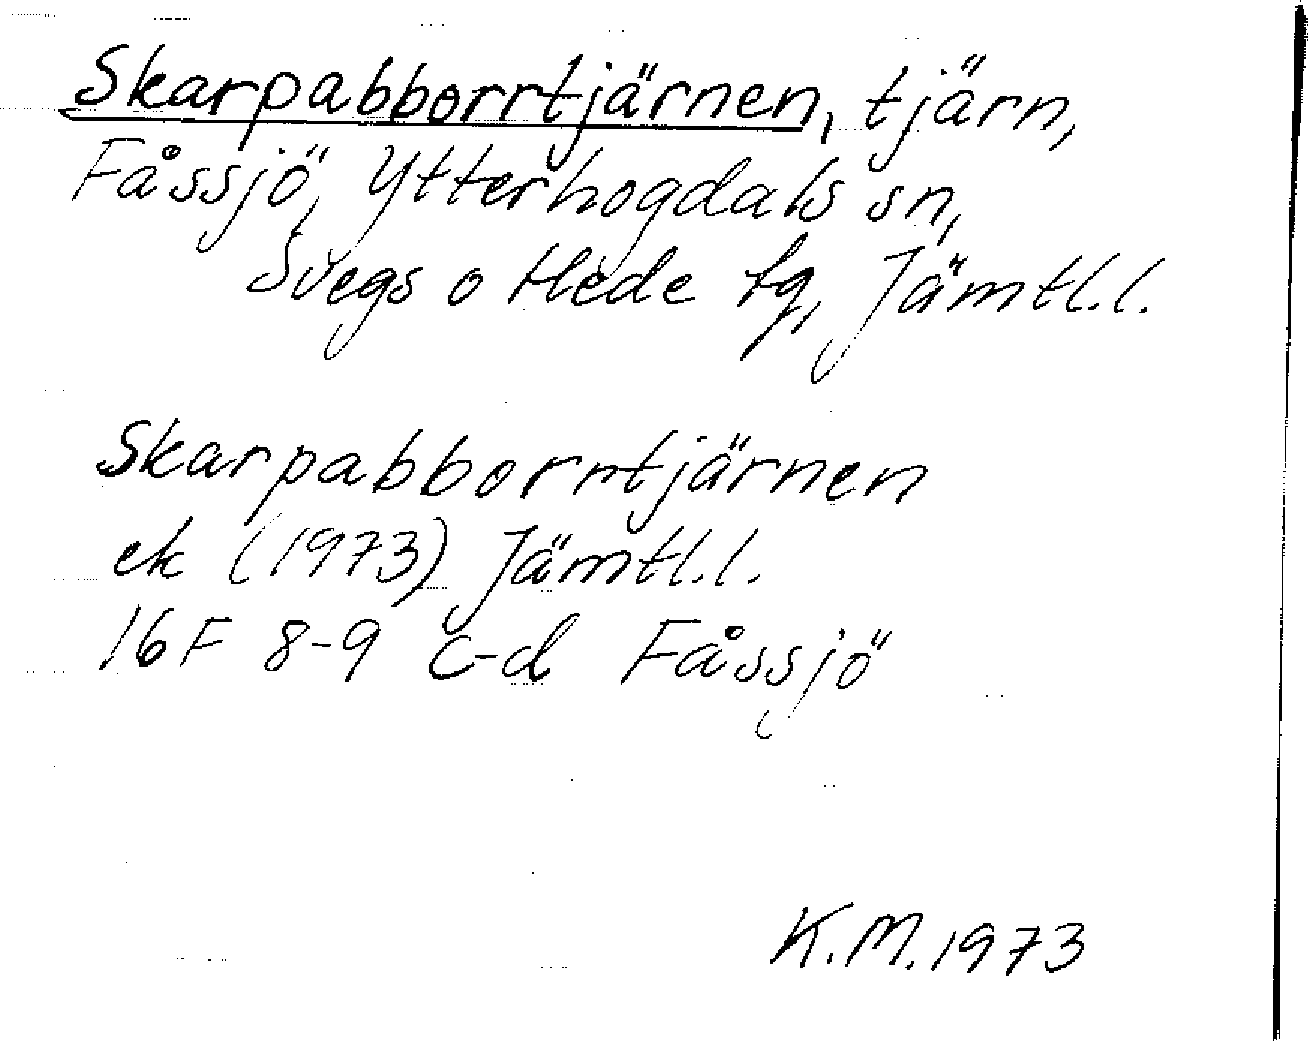 Skarpabborrtjärnen, tjärn,
Fåssjö, Ytterhogdals sn,
Svegs o Hede tg, Jämtl.l.
Skarpabborrtjärnen
ek (1973) Jämtl.l.
16F 8-9 c-d Fåssjö
K.M. 1973